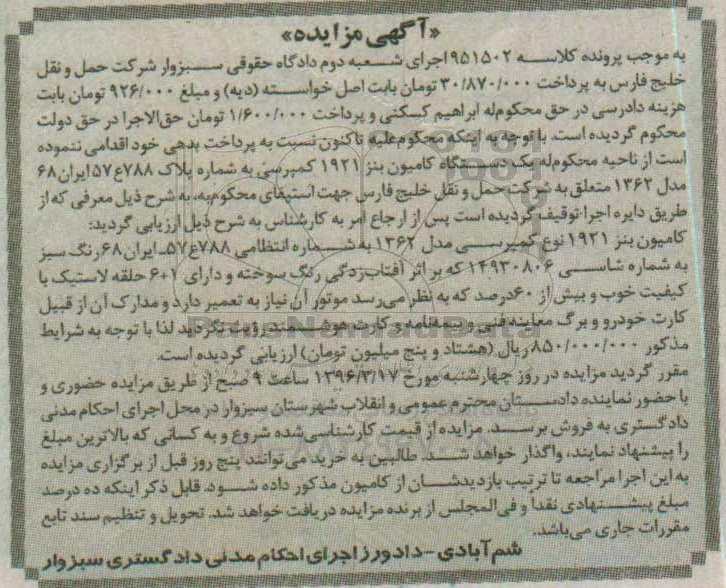 «آگهی مزایده»
به موجب پرونده کلاسه ۹۵۱۵۰۲ اجرای شعبه دوم دادگاه حقوقی سبزوار شرکت حمل و نقل
خلیج فارس به پرداخت ۳۰/۸۷۰/۰۰۰ تومان بابت اصل خواسته (دیه) و مبلغ ۹۲۶/۰۰۰ تومان بابت
هزینه دادرسی در حق محکوم‌له ابراهیم کسکنی و پرداخت ۱/۶۰۰/۰۰۰ تومان حق‌الاجرا در حق دولت
محکوم گردیده است. با توجه به اینکه محکوم‌علیه تاکنون نسبت به پرداخت بدهی خود اقدامی ننموده
است از ناحیه محکوم‌له یک دستگاه کامیون بنز ۱۹۲۱ کمپرسی به شماره پلاک ۷۸۸ع۵۷ایران۶۸
مدل ۱۳۶۲ متعلق به شرکت حمل و نقل خلیج فارس جهت استیفای محکوم‌به، به شرح ذیل معرفی که از
طریق دایره اجرا توقیف گردیده است پس از ارجاع امر به کارشناس به شرح ذیل ارزیابی گردید:
کامیون بنز ۱۹۲۱ نوع کمپرسی مدل ۱۳۶۲ به شماره انتظامی ۷۸۸ع۵۷ـ ایران۶۸ رنگ سبز
به شماره شاسی ۱۴۹۳۰۸۰۶ که بر اثر آفتاب‌زدگی رنگ سوخته و دارای ۱+۶ حلقه لاستیک با
کیفیت خوب و بیش از ۶۰درصد که به نظر می‌رسد موتور آن نیاز به تعمیر دارد و مدارک آن از قبیل
کارت خودرو و برگ معاینه فنی و بیمه‌نامه و کارت هوشمند رویت نگردید لذا با توجه به شرایط
مذکور ۸۵۰/۰۰۰/۰۰۰ ریال (هشتاد و پنج میلیون تومان) ارزیابی گردیده است.
مقرر گردید مزایده در روز چهارشنبه مورخ ۱۳۹۶/۳/۱۷ ساعت ۹ صبح از طریق مزایده حضوری و
با حضور نماینده دادستان محترم عمومی و انقلاب شهرستان سبزوار در محل اجرای احکام مدنی
دادگستری به فروش برسد. مزایده از قیمت کارشناسی شده شروع و به کسانی که بالاترین مبلغ
را پیشنهاد نمایند، واگذار خواهد شد. طالبین به خرید می‌توانند پنج روز قبل از برگزاری مزایده
به این اجرا مراجعه تا ترتیب بازدیدشان از کامیون مذکور داده شود. قابل ذکر اینکه ده درصد
مبلغ پیشنهادی نقدا و فی‌المجلس از برنده مزایده دریافت خواهد شد. تحویل و تنظیم سند تابع
مقررات جاری می‌باشد.
شم‌آبادی - دادورز اجرای احکام مدنی دادگستری سبزوار